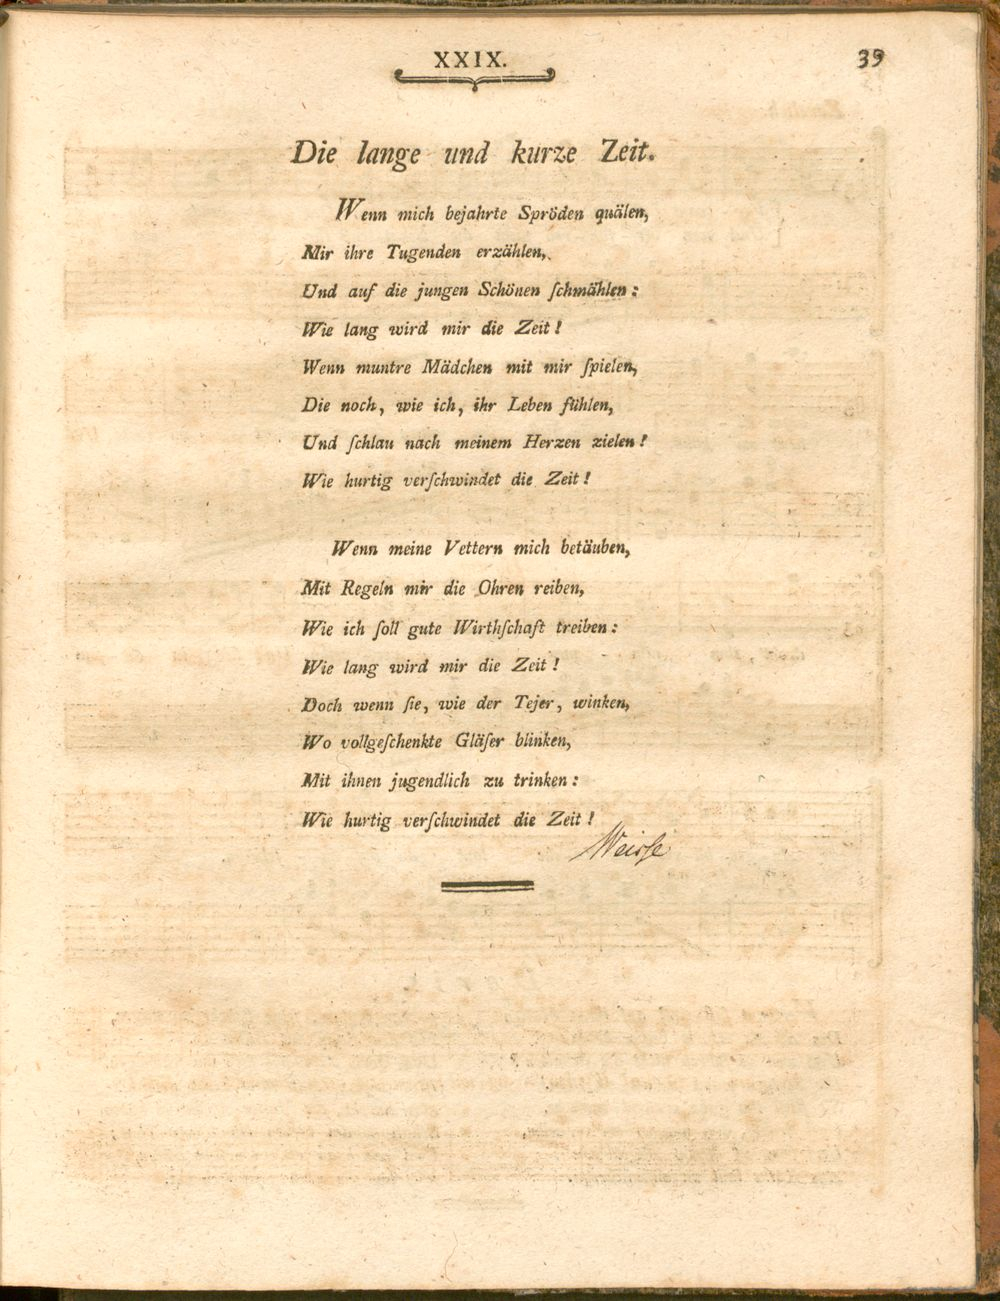 XXIX.
39
Die lange und kurze Zeit.
Wenn mich bejahrte Spröden quälen,
Mir ihre Tugenden erzählen,
Und auf die jungen Schönen ſchmählen:
Wie lang wird mir die Zeit!
Wenn muntre Mädchen mit mir ſpielen,
Die noch, wie ich, ihr Leben fühlen,
Und ſchlau nach meinem Herzen zielen!
Wie hurtig verſchwindet die Zeit!
Wenn meine Vettern mich betäuben,
Mit Regeln mir die Ohren reiben,
Wie ich ſoll gute Wirthſchaft treiben:
Wie lang wird mir die Zeit!
Doch wenn ſie, wie der Tejer, winken,
Wo vollgeſchenkte Gläſer blinken,
Mit ihnen jugendlich zu trinken:
Wie hurtig verſchwindet die Zeit!
Weisſe